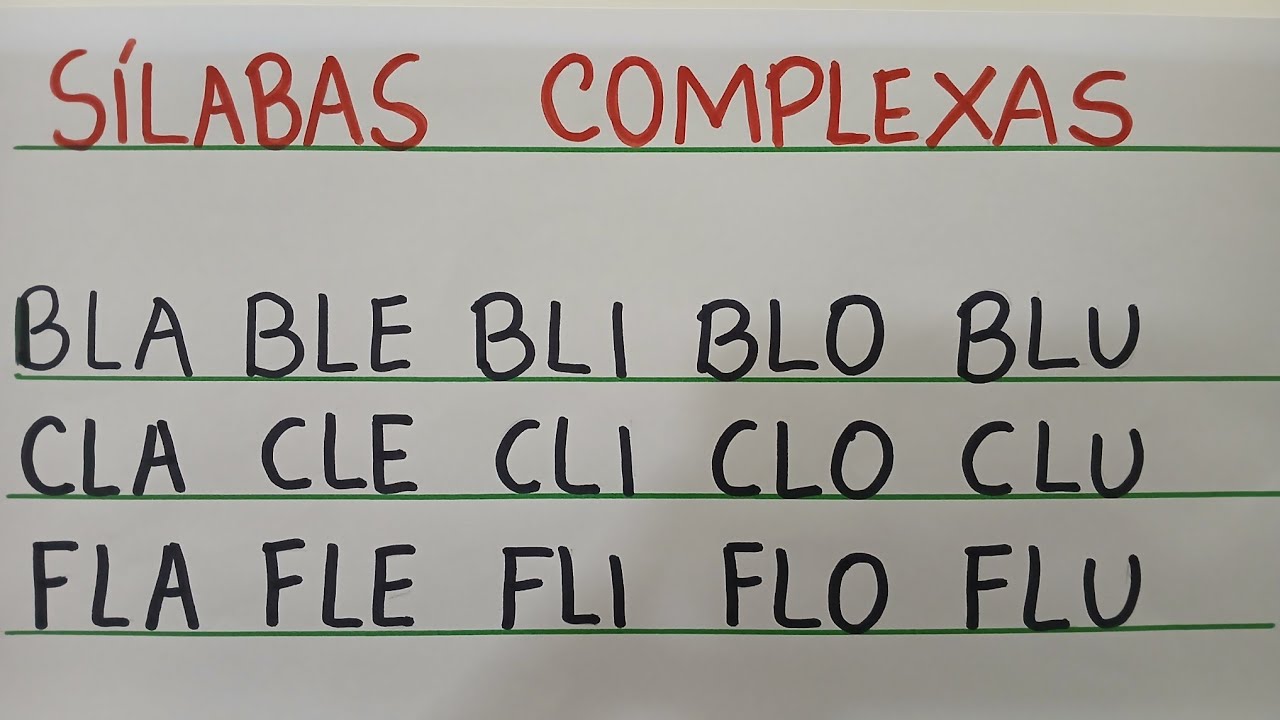 SÍLABAS COMPLEXAS
BLA BLE BLI BLO BLU
CLA CLE CLI CLO CLU
FLA FLE FLI FLO FLU